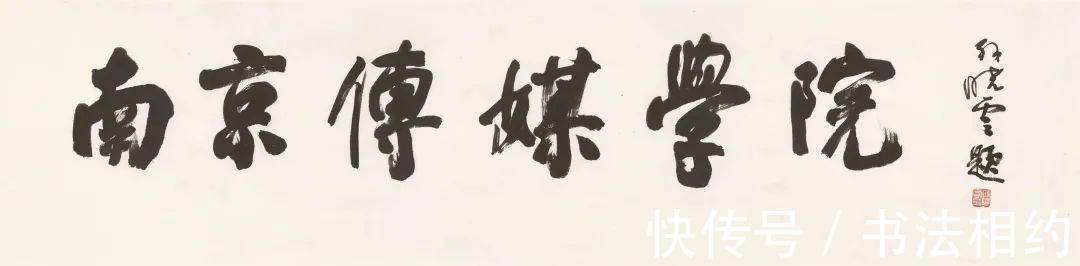 南京傳媒學院
孙晓雲題
快传号 / 书法相约